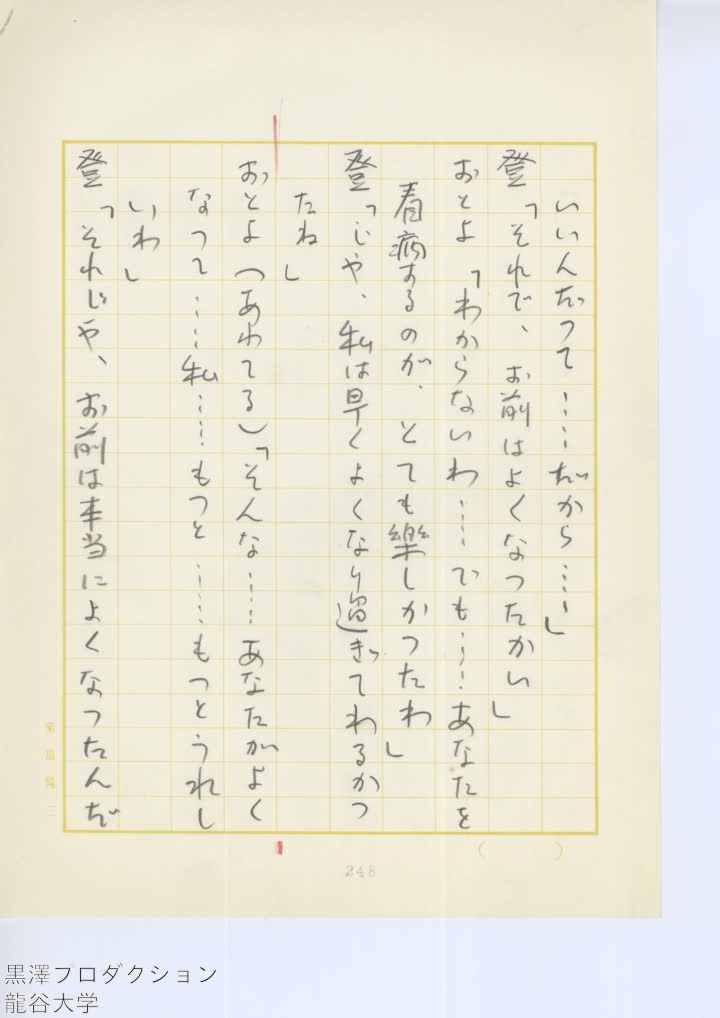 いいんだつて……だから……」
登「それで、お前はよくなつたかい」
おとよ「わからないわ……でも……あなたを
看病するのが、とても樂しかつたわ」
登「じや、私は早くよくなり過ぎてわるかつ
たね」
おとよ（あわてる）「そんな……あなたがよく
なつて……私……もつと……もつとうれし
いわ」
登「それじや、お前は本当によくなつたんだ
菊島隆三
248
黒澤プロダクション
龍谷大学